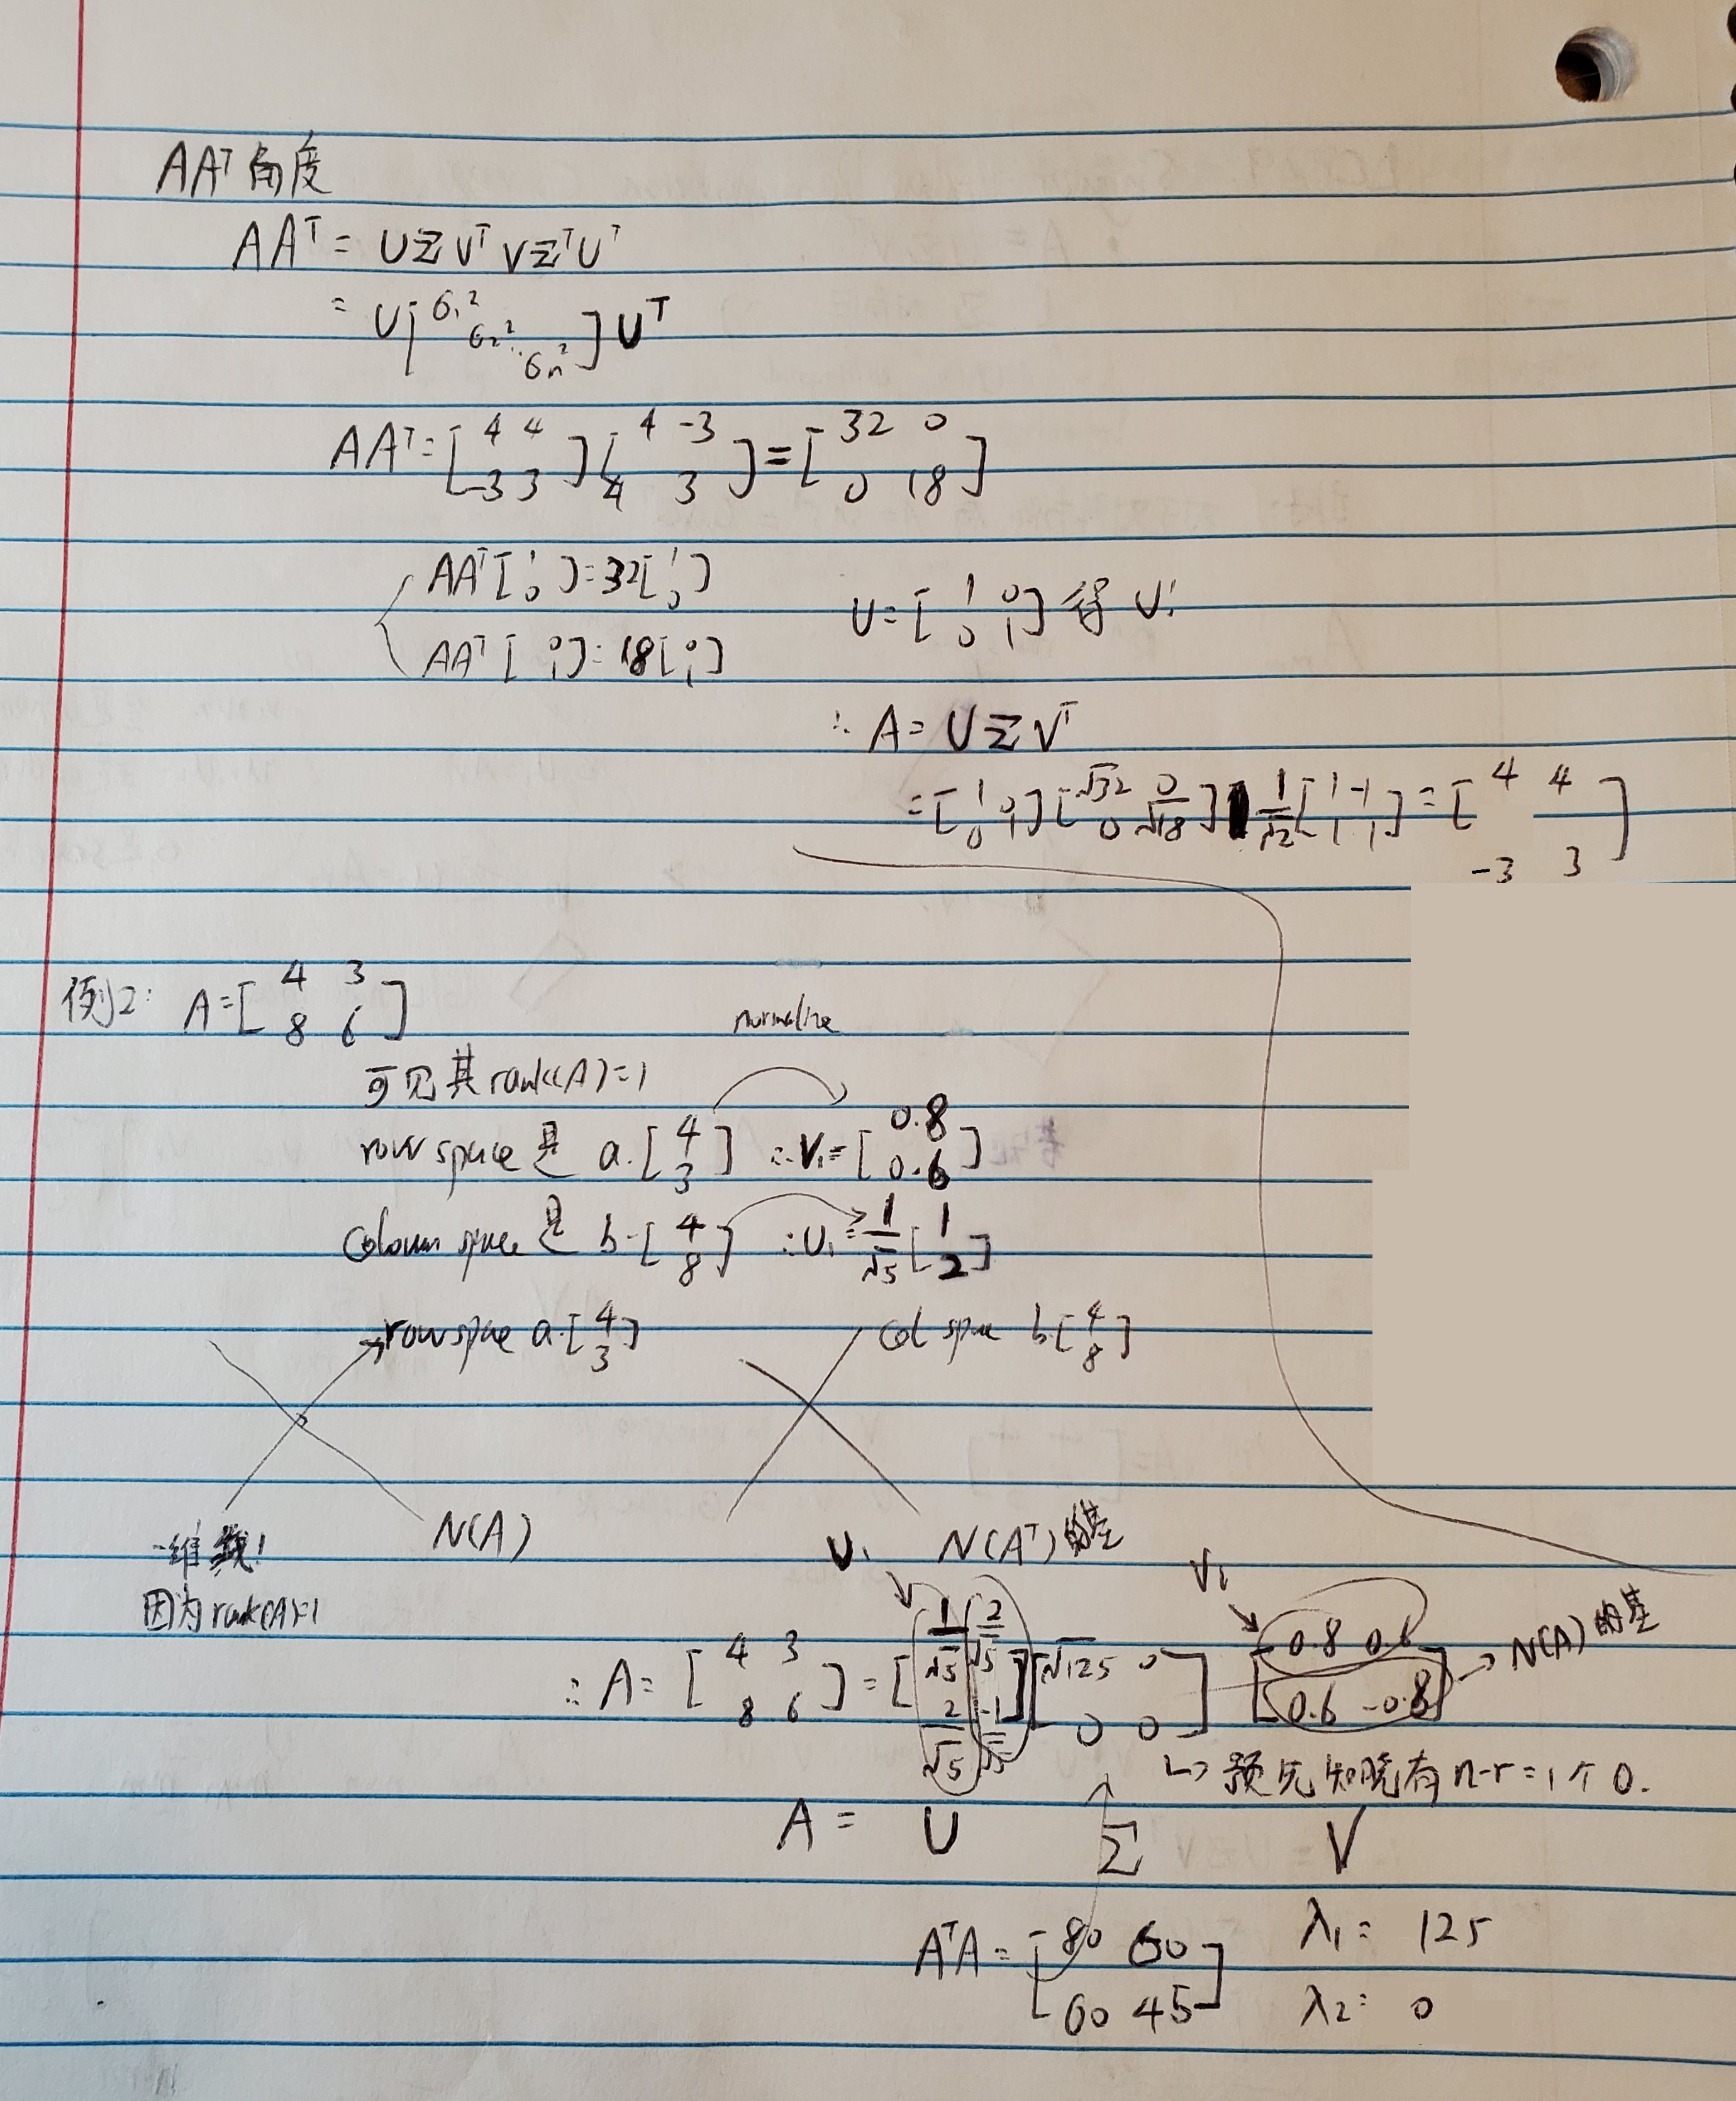 AAᵀ 角度
AAᵀ = UΣVᵀ VΣᵀUᵀ
= U[σ₁² σ₂² ... σₙ²]Uᵀ
AAᵀ = [4 4; -3 3][4 -3; 4 3] = [32 0; 0 18]
AAᵀ[1; 0] = 32[1; 0]
AAᵀ[0; 1] = 18[0; 1]
U = [1 0; 0 1] 得 U!
∴ A = UΣVᵀ
= [1 0; 0 1][√32 0; 0 √18] 1/√2 [1 -1; 1 1] = [4 4; -3 3]
例2: A = [4 3; 8 6]
可见其 rank(A)=1
normalize
row space 是 a·[4; 3] ∴ V₁ = [0.8; 0.6]
Column space 是 b·[4; 8] ∴ U₁ = 1/√5 [1; 2]
row space a·[4; 3]
col space b·[4; 8]
一维线!
因为 rank(A)=1
N(A)
U₁
N(Aᵀ)的基
V₁
∴ A = [4 3; 8 6] = [1/√5 2/√5; 2/√5 -1/√5][√125 0; 0 0][0.8 0.6; 0.6 -0.8] → N(A)的基
↳ 预先知晓有 n-r=1个0.
A = U Σ V
AᵀA = [80 60; 60 45]
λ₁ = 125
λ₂ = 0